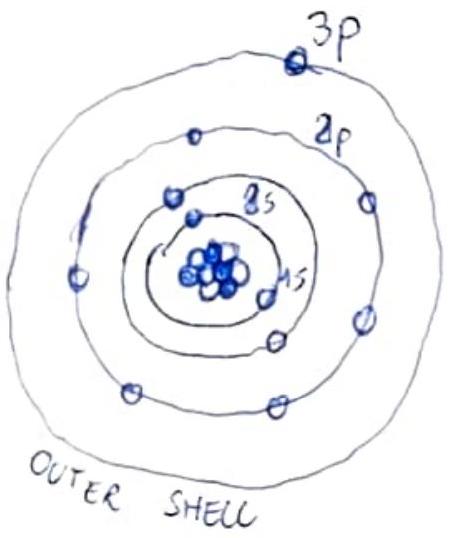 3p
2p
2s
1s
OUTER SHELL